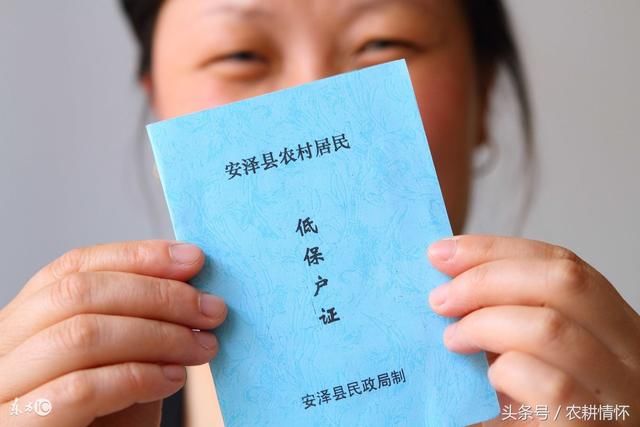 安泽县农村居民
低保户证
安泽县民政局制
东方IC
头条号／农耕情怀